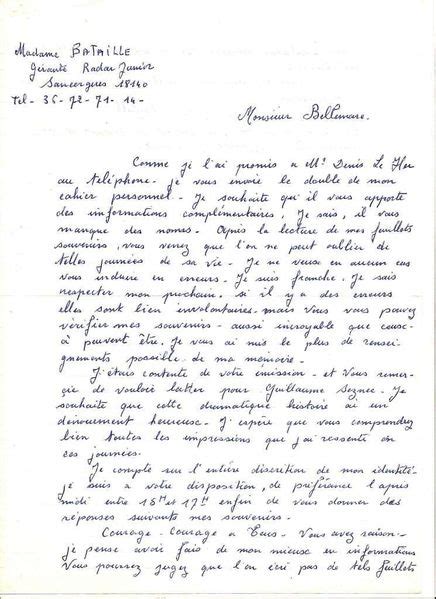 Madame BATAILLE
Gérante Radar Junior
Sancergues 18140
Tel - 36-72-71-14-
Monsieur Bellemare.
Comme je l'ai promis a Mr Denis Le Her
au téléphone - je vous envoie le double de mon
cahier personnel - Je souhaite qu'il vous apporte
des informations complémentaires, Je sais, il vous
manque des noms - Après la lecture de mes feuillets
souvenirs, vous verrez que l'on ne peut oublier de
telles journées de sa vie - Je ne veux en aucun cas
vous induire en erreurs - Je suis franche - Je sais
respecter mon prochain, si il y a des erreurs
elles sont bien involontaires, mais vous vous pouvez
vérifier mes souvenirs - aussi incroyable que ceux-
à peuvent être. Je vous ai mis le plus de rensei-
gnements possible - de ma mémoire -
J'étais contente de votre émission - et vous remer-
çie de vouloir lutter pour Guillaume Seznec - Je
souhaite que cette dramatique histoire ai un
denoument heureuse - J'espère que vous comprendrez
bien toutes les impressions que j'ai ressentie en
ces journées.
Je compte sur l'entière discrition de mon identité-
je suis a votre disposition, de préférance l'après
midi entre 15H et 17H enfin de vous donner des
réponses suivants mes souvenirs -
Courage - Courage a Tous - Vous avez raison -
je pense avoir fais de mon mieux en informations
Vous pourrez jugez que l'on écri pas de tels feuillets